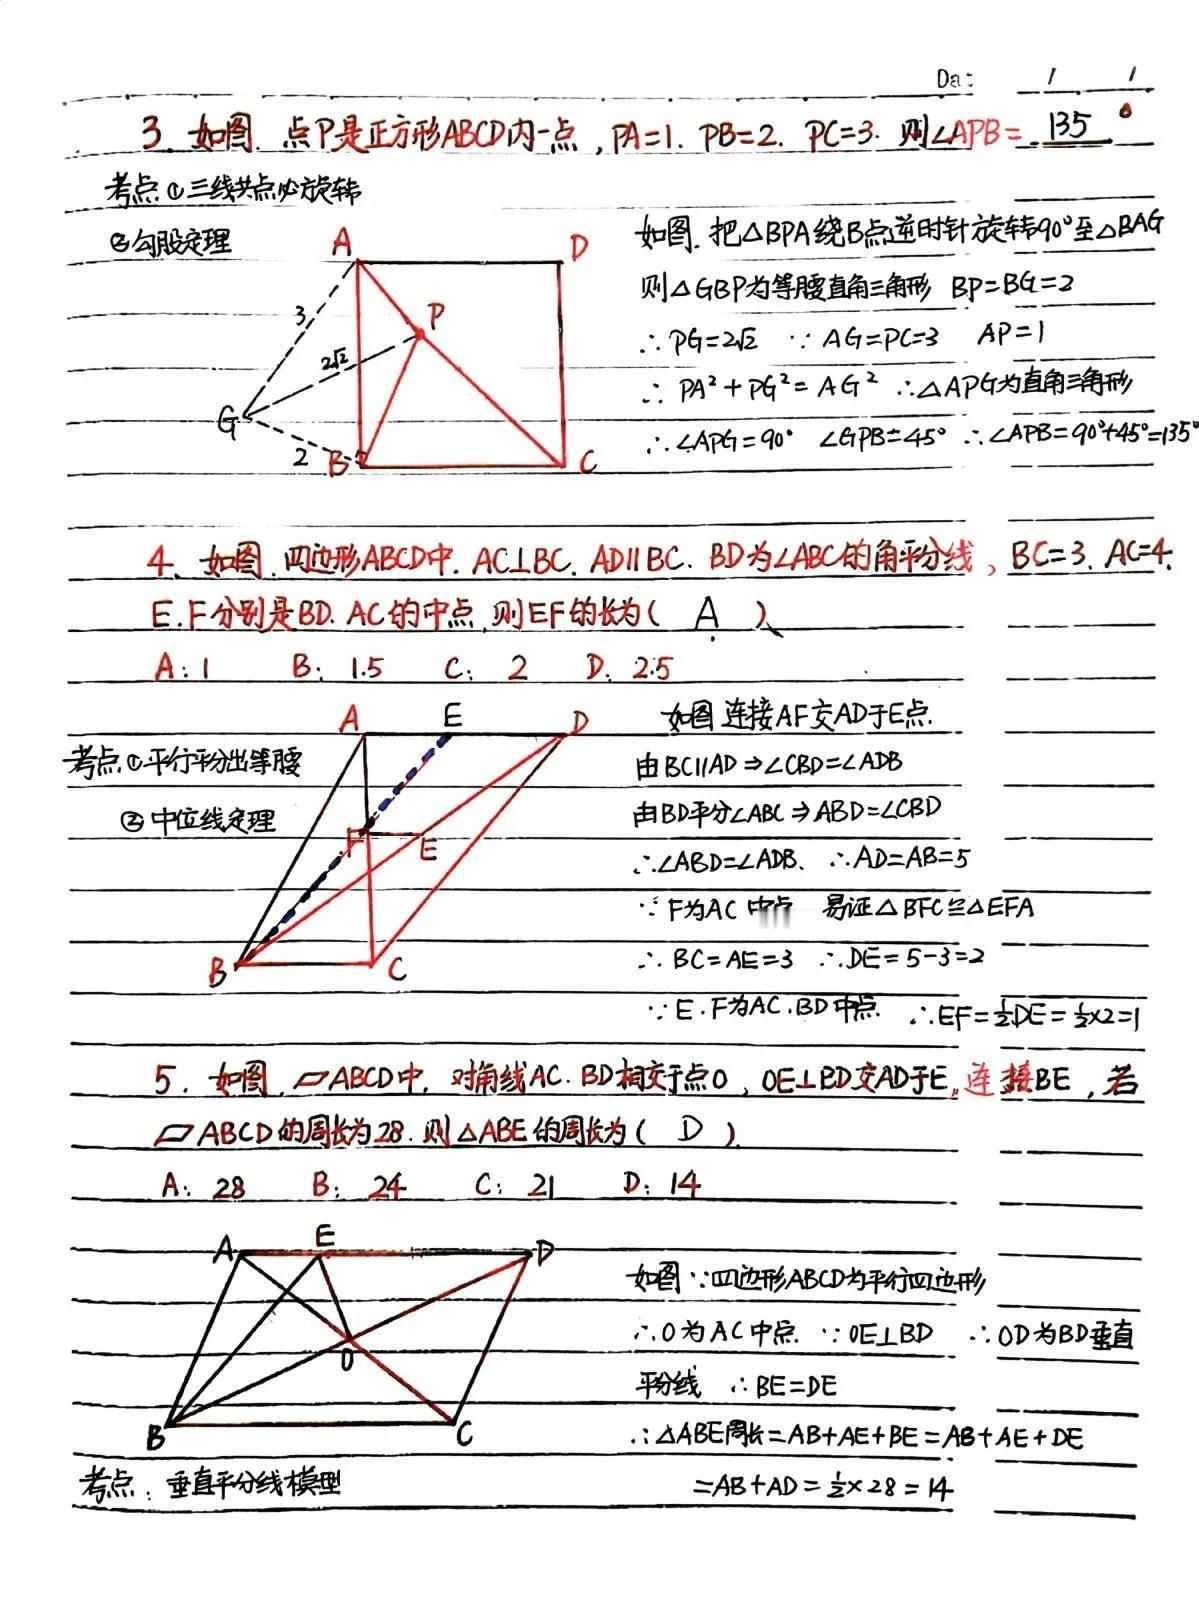 Da:    /    /
3. 如图. 点P是正方形ABCD内一点, PA=1. PB=2. PC=3. 则∠APB= 135°
考点①三线共点必旋转
②勾股定理
A
D
P
3
2√2
G
2
B
C
如图. 把△BPA绕B点逆时针旋转90°至△BAG
则△GBP为等腰直角三角形 BP=BG=2
∴PG=2√2 ∵AG=PC=3 AP=1
∴ PA²+PG²=AG² ∴△APG为直角三角形
∴∠APG=90° ∠GPB=45° ∴∠APB=90°+45°=135°
4. 如图. 四边形ABCD中. AC⊥BC. AD∥BC. BD为∠ABC的角平分线, BC=3. AC=4.
E.F分别是BD.AC的中点,则EF的长为( A )
A: 1 B: 1.5 C: 2 D: 2.5
考点①平行平分出等腰
②中位线定理
A
E
D
F
E
B
C
如图 连接AF交AD于E点.
由BC∥AD⇒∠CBD=∠ADB
由BD平分∠ABC⇒ABD=∠CBD
∴∠ABD=∠ADB. ∴AD=AB=5
∵F为AC中点 易证△BFC≌△EFA
∴BC=AE=3 ∴DE=5-3=2
∵E.F为AC.BD中点. ∴EF=½DE=½×2=1
5. 如图. ▱ABCD中. 对角线AC.BD相交于点O, OE⊥BD交AD于E, 连接BE, 若
▱ABCD的周长为28. 则△ABE的周长为( D )
A: 28 B: 24 C: 21 D: 14
A
E
D
O
B
C
考点: 垂直平分线模型
如图∵四边形ABCD为平行四边形
∴O为AC中点. ∵OE⊥BD ∴OD为BD垂直
平分线 ∴BE=DE
∴△ABE周长=AB+AE+BE=AB+AE+DE
=AB+AD=½×28=14